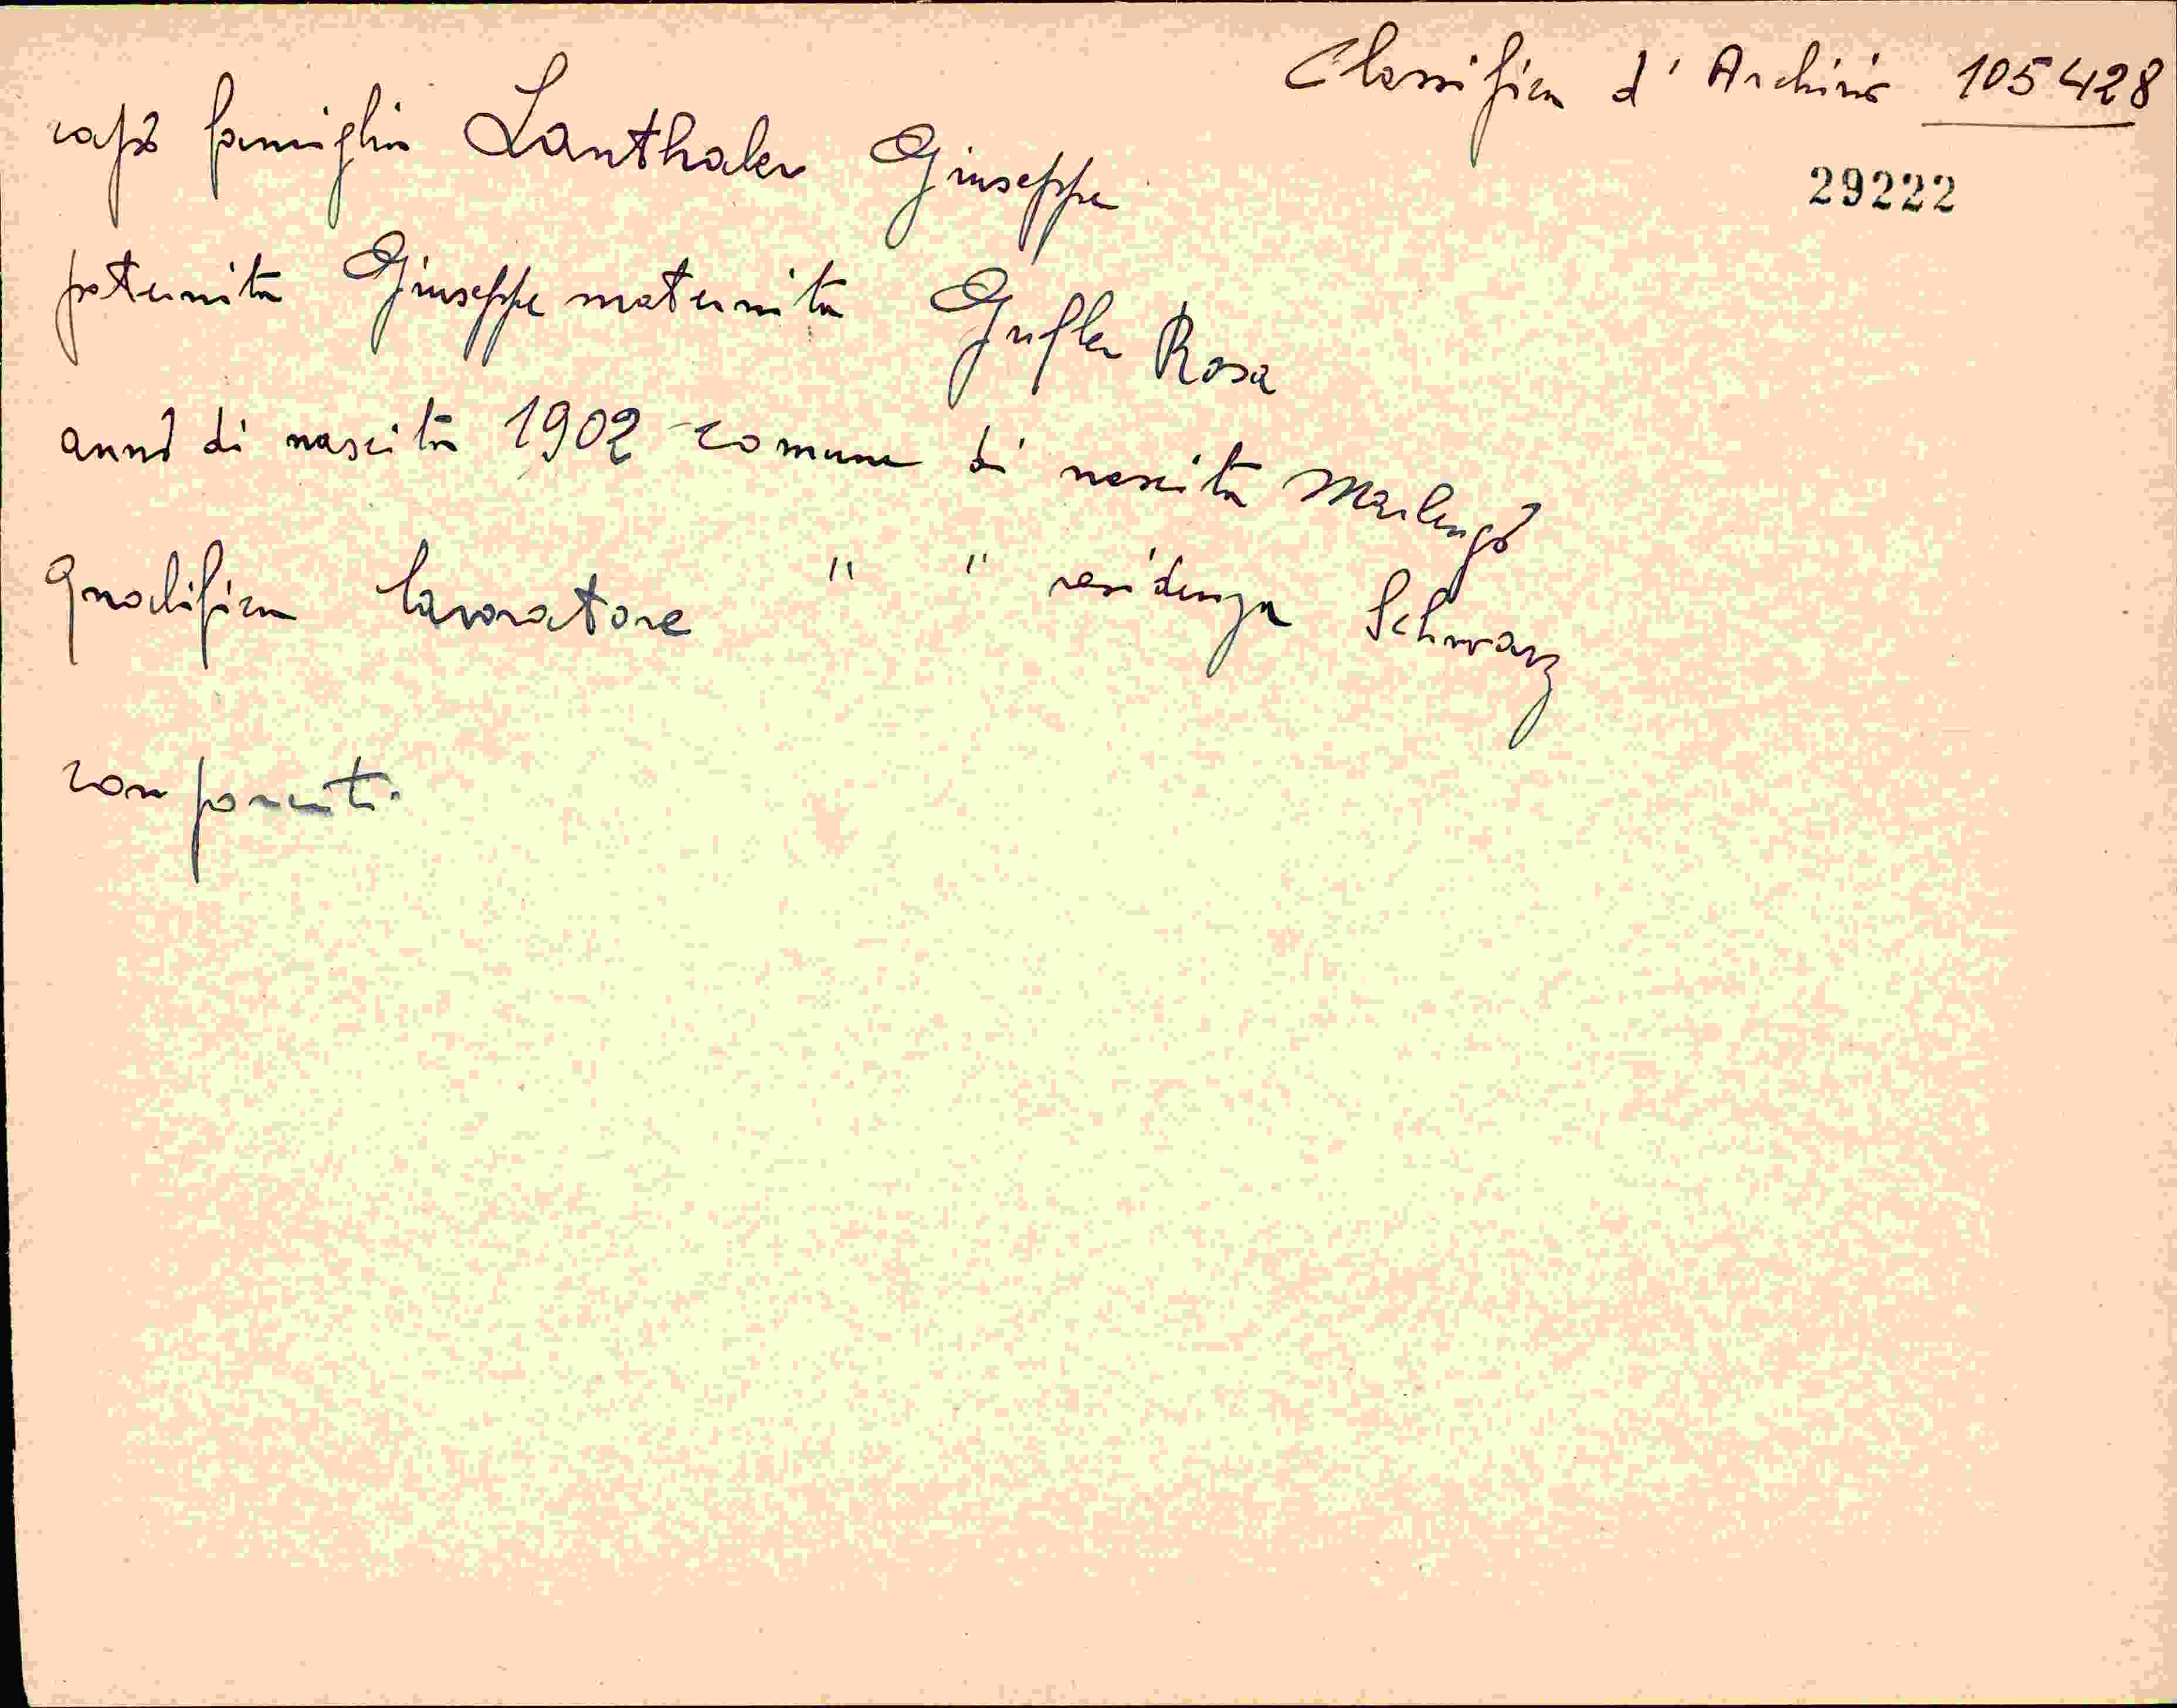 Classifica d'Archivio 105428
capo famiglia Lanthaler Giuseppe
29222
paternita Giuseppe maternita Gufler Rosa
anno di nascita 1902 comune di nascita Marlengo
Qualifica lavoratore " " residenza Schwarz
componenti